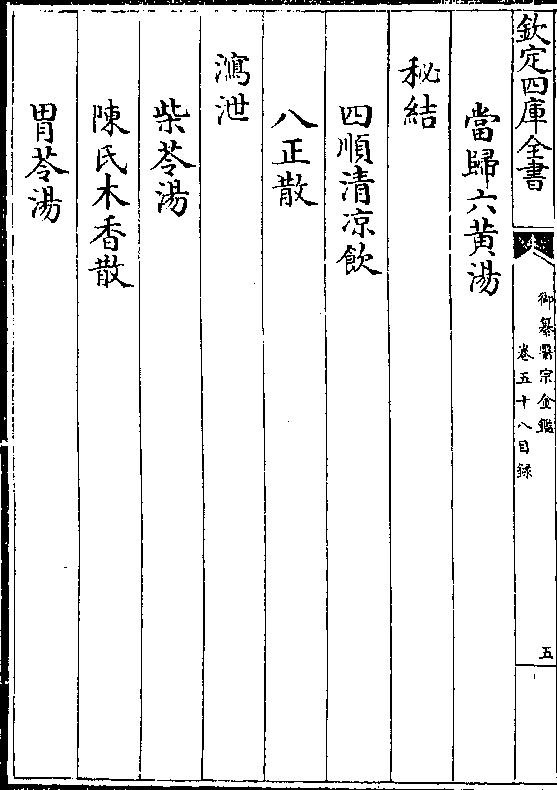 欽定四庫全書
御纂醫宗金鑑
卷五十八目録
五
當歸六黃湯
秘結
四順清凉飲
八正散
瀉泄
柴苓湯
陳氏木香散
胃苓湯